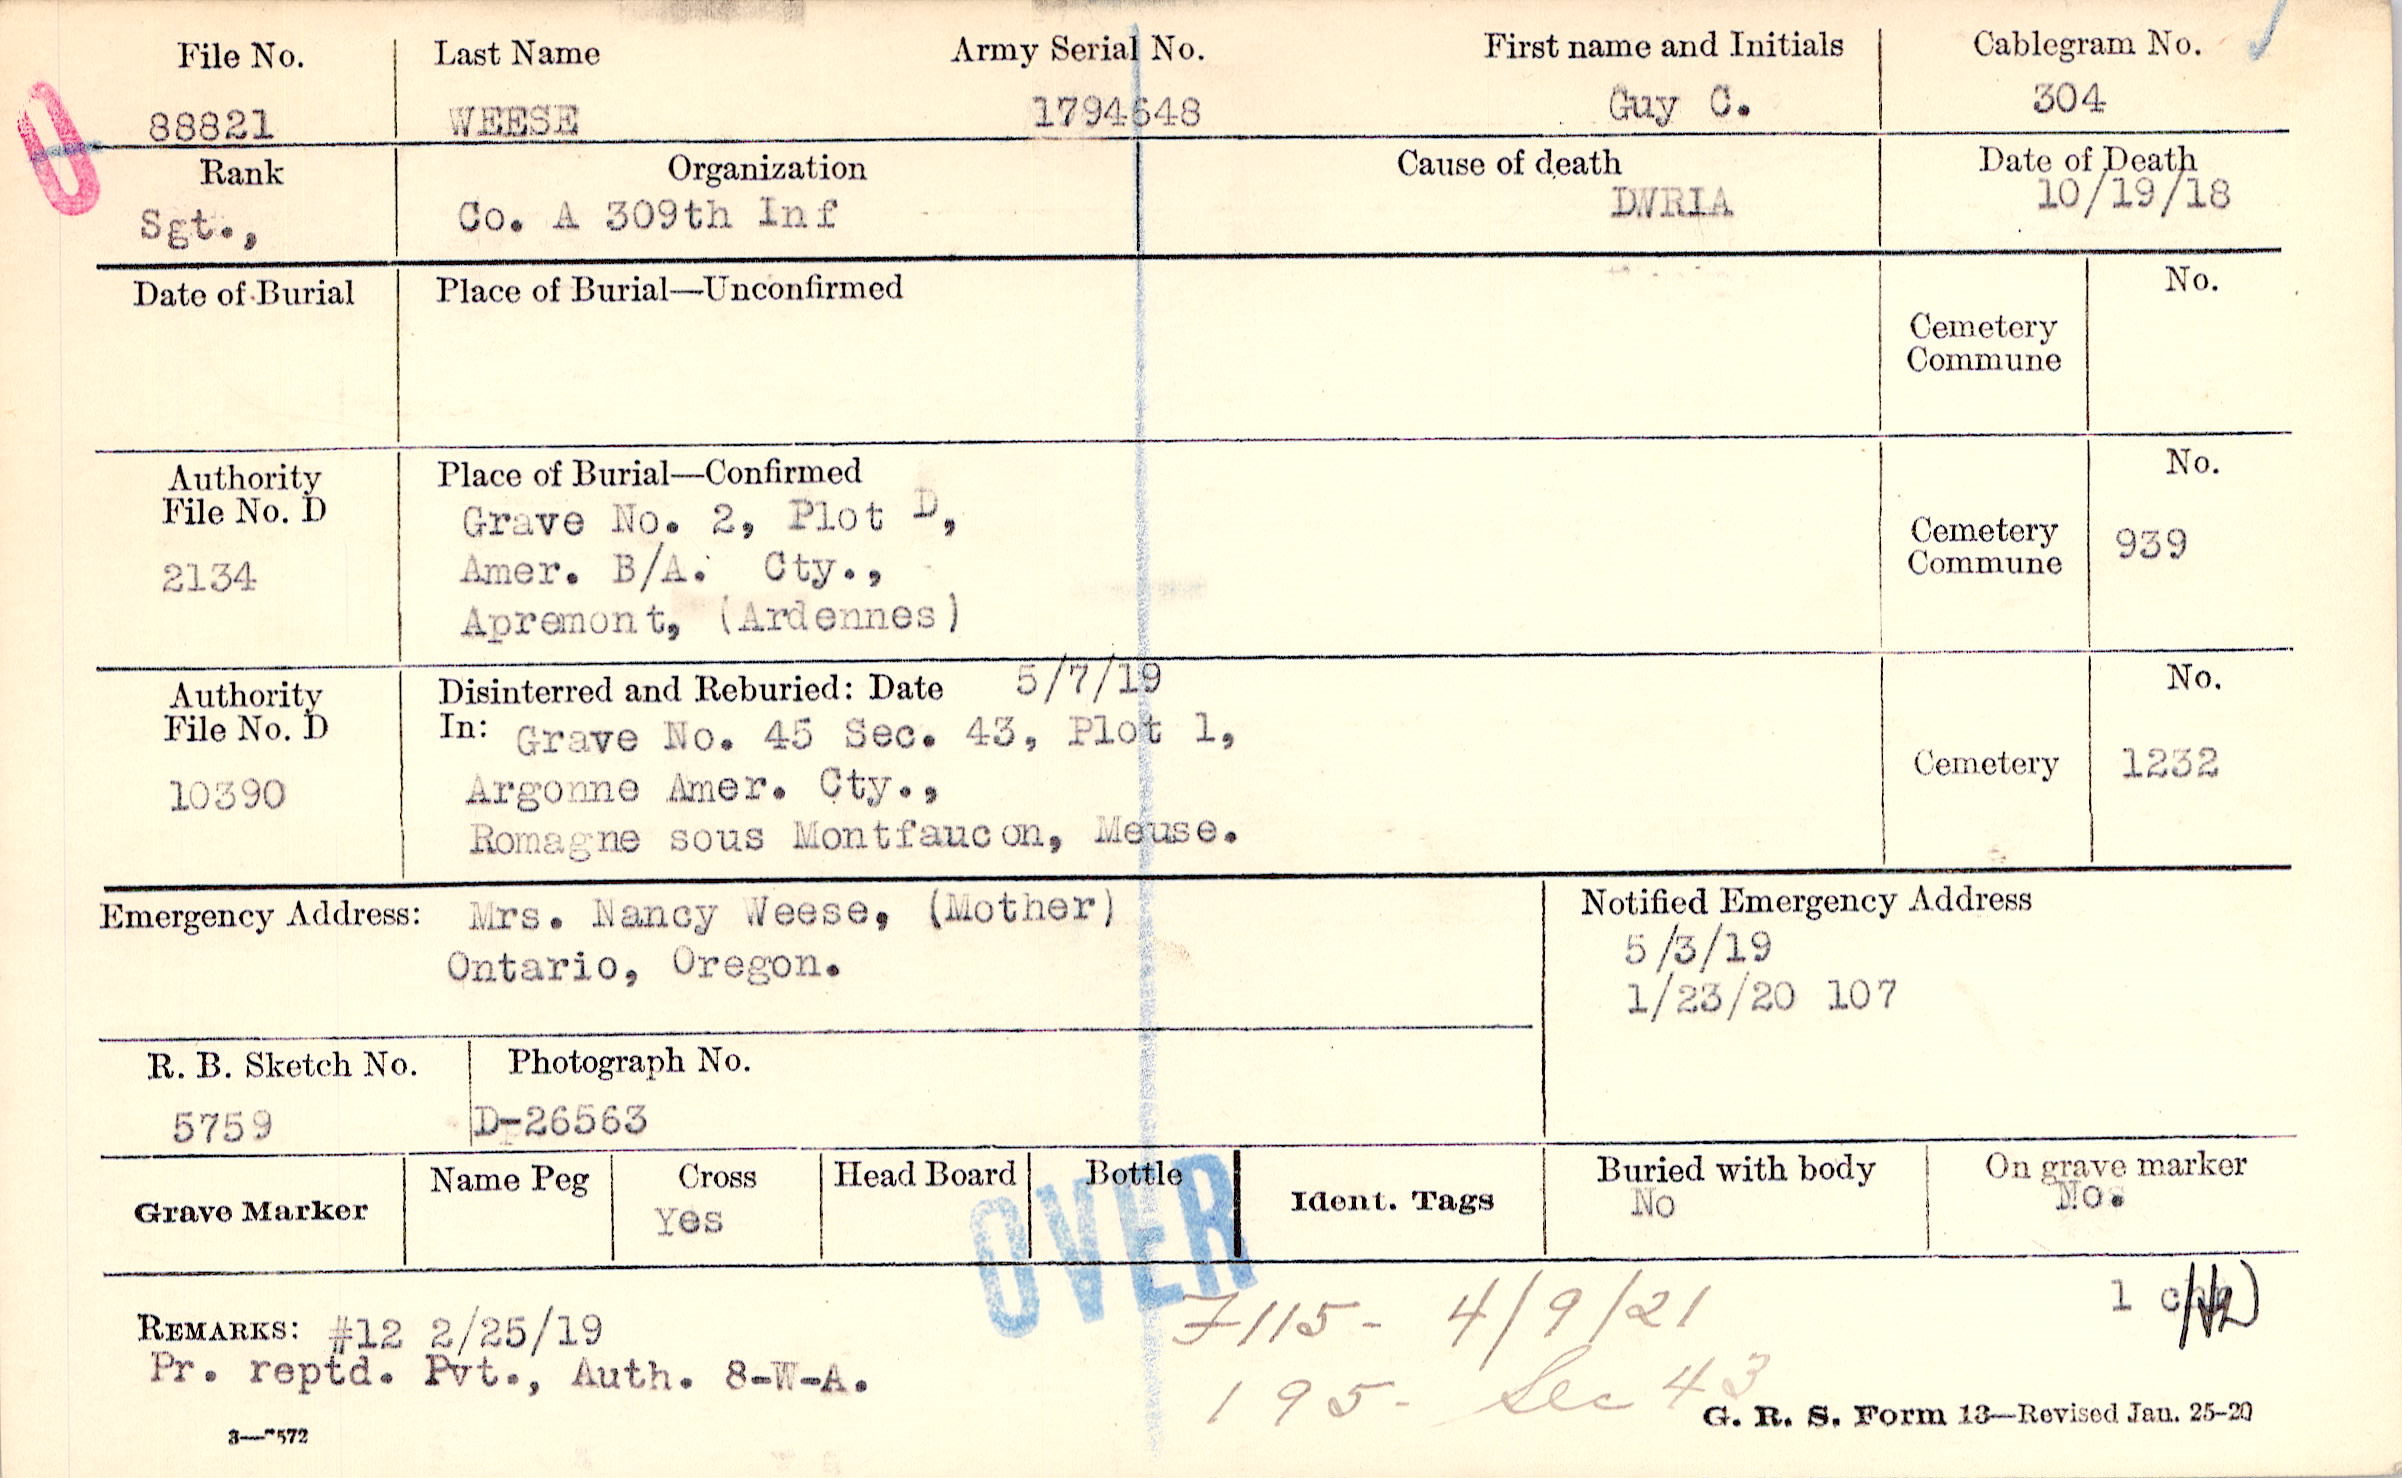 File No. Last Name Army Serial No. First name and Initials Cablegram No.
88821 WEESE 1794648 Guy C. 304
Rank Organization Cause of death Date of Death
Sgt., Co. A 309th Inf DWRIA 10/19/18
Date of Burial Place of Burial—Unconfirmed No.
Cemetery
Commune
Authority Place of Burial—Confirmed No.
File No. D Grave No. 2, Plot D,
2134 Amer. B/A. Cty., Cemetery
Commune 939
Apremont, (Ardennes)
Authority Disinterred and Reburied: Date 5/7/19 No.
File No. D In: Grave No. 45 Sec. 43, Plot 1,
10390 Argonne Amer. Cty., Cemetery 1232
Romagne sous Montfaucon, Meuse.
Emergency Address: Mrs. Nancy Weese, (Mother) Notified Emergency Address
Ontario, Oregon. 5/3/19
1/23/20 107
R. B. Sketch No. Photograph No.
5759 D-26563
Grave Marker Name Peg Cross Head Board Bottle Ident. Tags Buried with body On grave marker
Yes No No.
OVER
1
REMARKS: #12 2/25/19 7115- 4/9/21
Pr. reptd. Pvt., Auth. 8-W-A. 195- Sec 43
G. R. S. Form 13—Revised Jan. 25-20